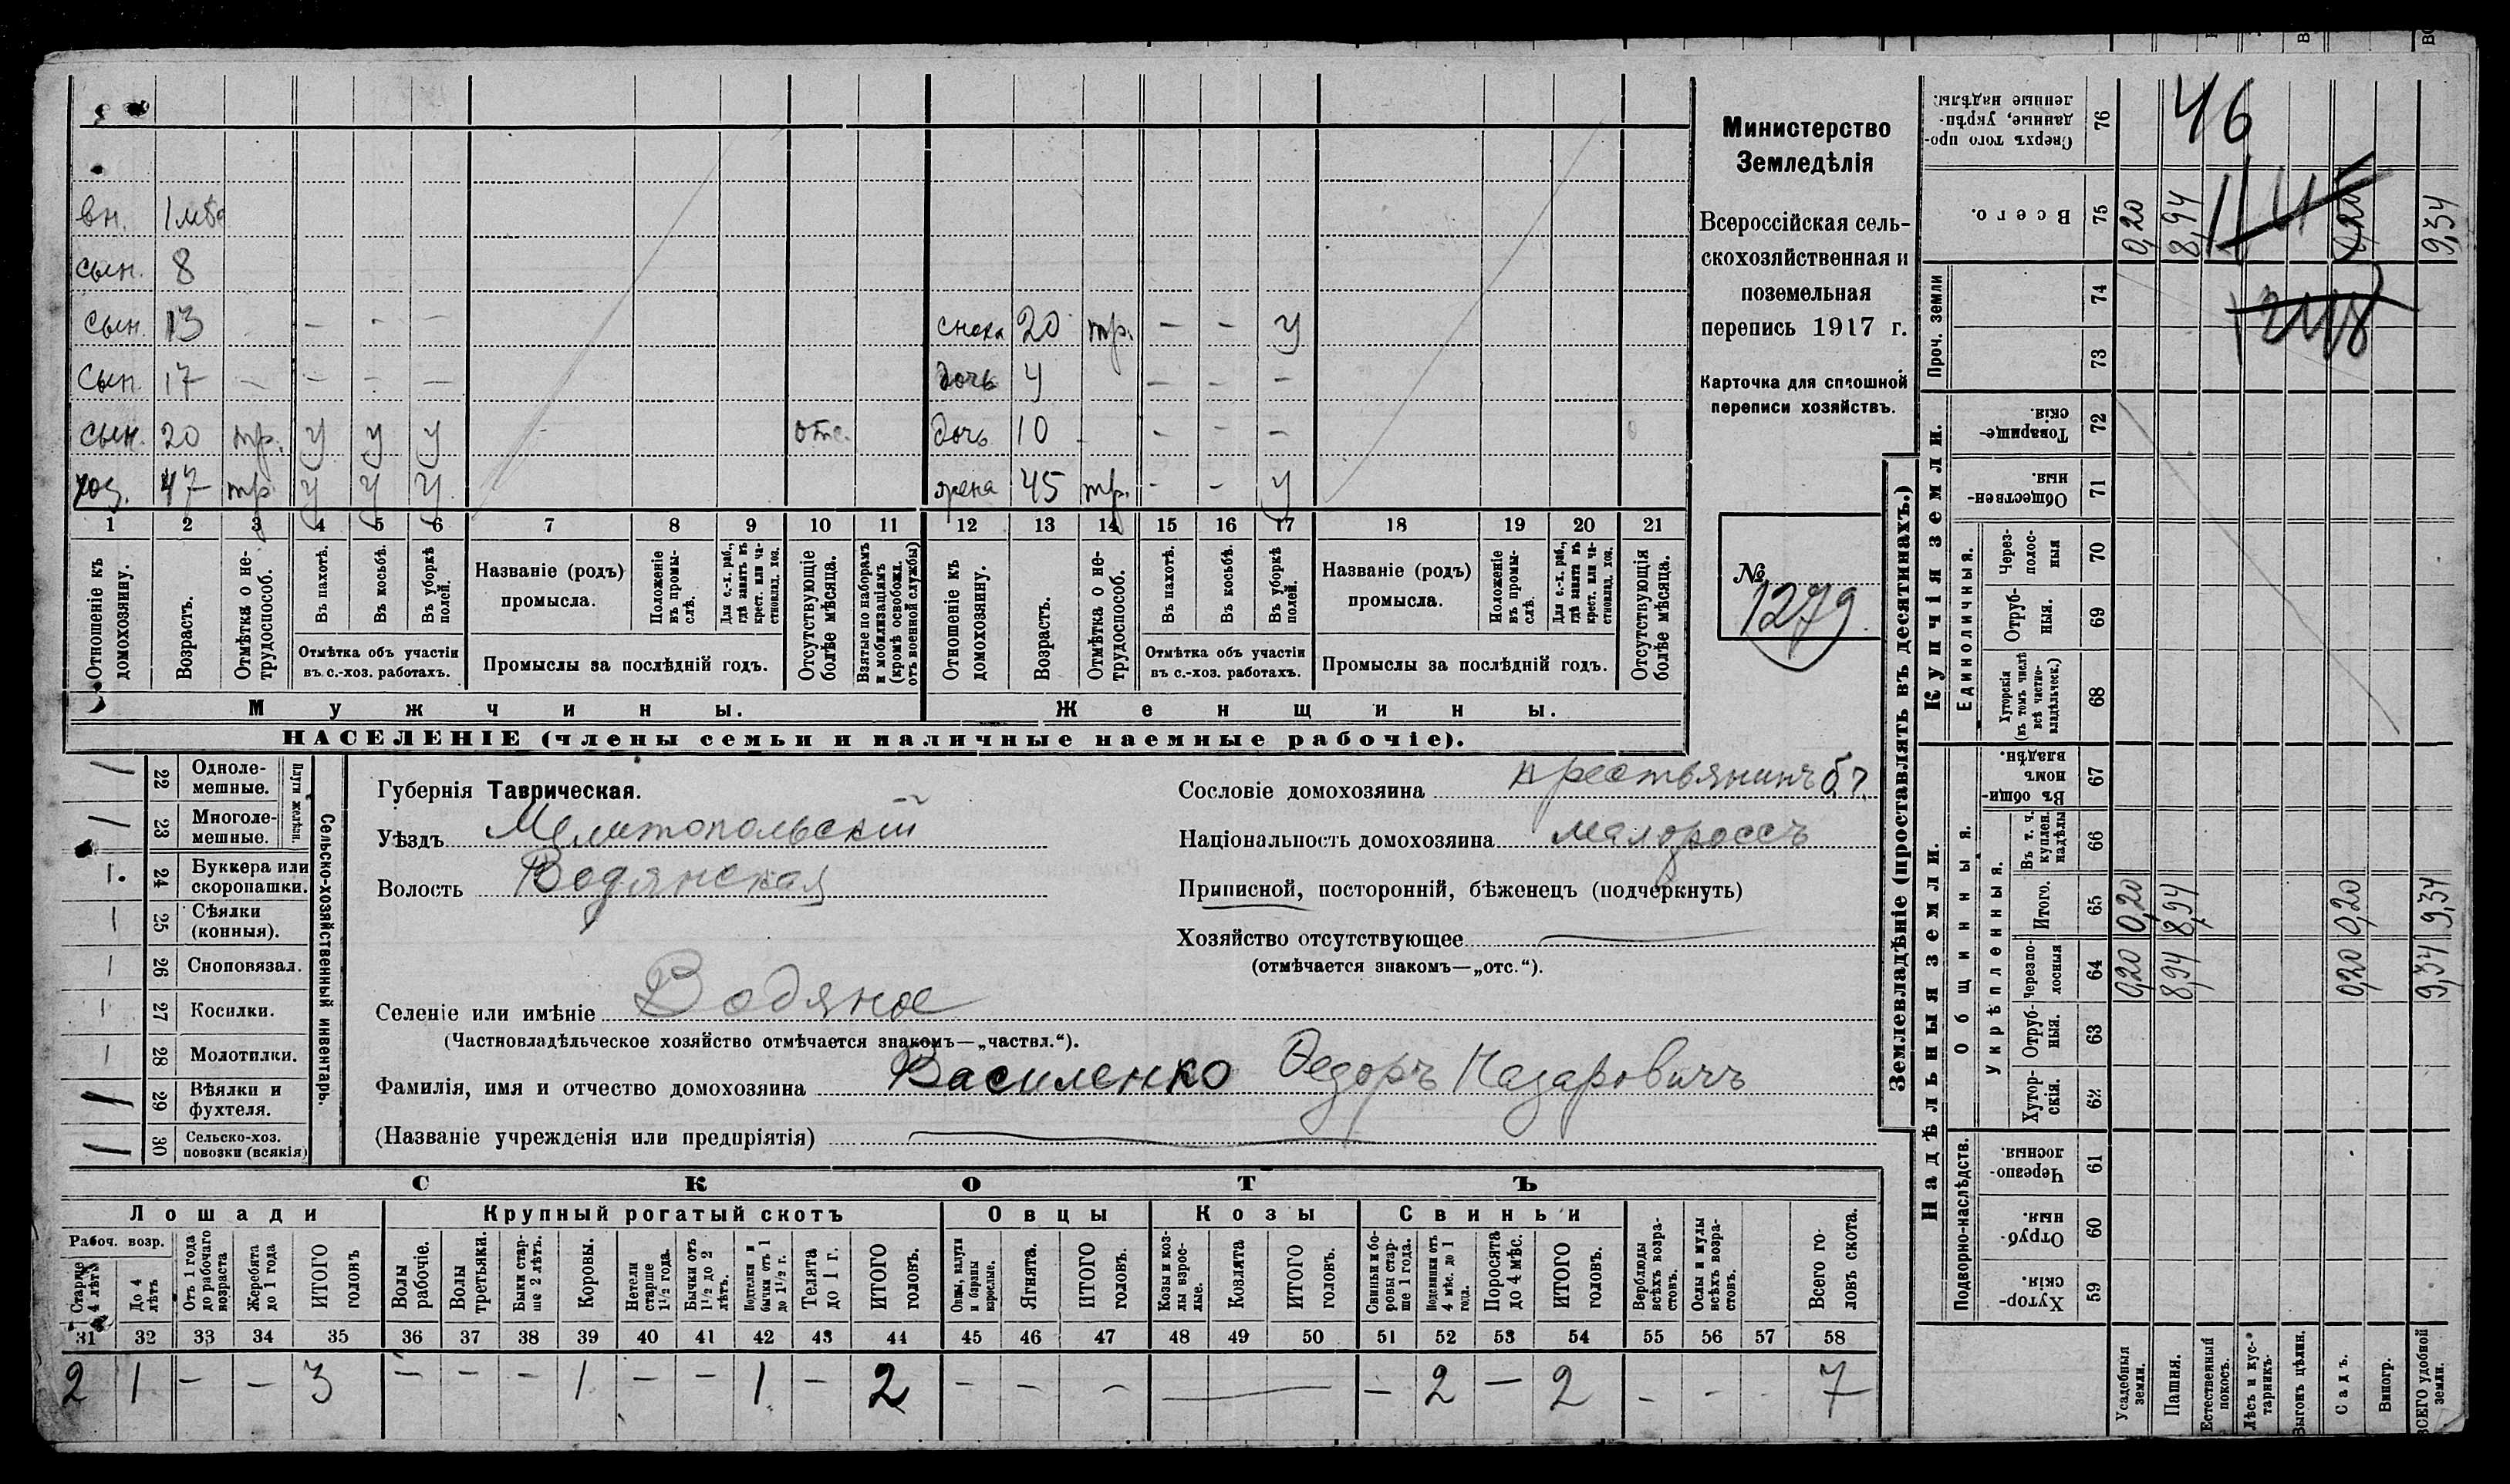 вн. 1 мѣс
сын. 8
сын. 13 - - -
сын. 17 - - - -
сын. 20 тр. у у у отс.
хоз. 47 тр. у у у
1 2 3 4 5 6 7 8 9 10 11
Отношеніе къ домохозяину.
Возрастъ.
Отмѣтка о нетрудоспособ.
Въ пахотѣ.
Въ косьбѣ.
Въ уборкѣ полей.
Отмѣтка объ участіи
въ с.-хоз. работахъ.
Названіе (родъ)
промысла.
Положеніе въ промыслѣ.
Для с.-х. раб., гдѣ занятъ въ крест. или частновлад. хоз.
Промыслы за послѣдній годъ.
Отсутствующіе болѣе мѣсяца.
Взятые по наборамъ и мобилизаціямъ (кромѣ освобожд. отъ военной службы)
Мужчины.
сноха 20 тр. - - у
дочь 4 - - -
дочь 10 - - - -
жена 45 тр. - - у
12 13 14 15 16 17 18 19 20 21
Отношеніе къ домохозяину.
Возрастъ.
Отмѣтка о нетрудоспособ.
Въ пахотѣ.
Въ косьбѣ.
Въ уборкѣ полей.
Отмѣтка объ участіи
въ с.-хоз. работахъ.
Названіе (родъ)
промысла.
Положеніе въ промыслѣ.
Для с.-х. раб., гдѣ занята въ крест. или частновлад. хоз.
Промыслы за послѣдній годъ.
Отсутствующія болѣе мѣсяца.
Женщины.
НАСЕЛЕНІЕ (члены семьи и наличные наемные рабочіе).
Министерство
Земледѣлія
Всероссійская сель-
скохозяйственная и
поземельная
перепись 1917 г.
Карточка для сплошной
переписи хозяйствъ.
№
1279
Сельско-хозяйственный инвентарь.
Плуги желѣзн.
/ 22 Одноле-
мешные.
/ 23 Многоле-
мешные.
1. 24 Буккера или
скоропашки.
1 25 Сѣялки
(конныя).
1 26 Сноповязал.
1 27 Косилки.
1 28 Молотилки.
1 29 Вѣялки и
фухтеля.
1 30 Сельско-хоз.
повозки (всякія)
Губернія Таврическая.
Уѣздъ Мелитопольскій
Волость Водянская
Сословіе домохозяина крестьянинъ
Національность домохозяина малороссъ
Приписной, посторонній, бѣженецъ (подчеркнуть)
Хозяйство отсутствующее
(отмѣчается знакомъ—„отс.“).
Селеніе или имѣніе Водяное
(Частновладѣльческое хозяйство отмѣчается знакомъ—„частвл.“).
Фамилія, имя и отчество домохозяина Василенко Ѳедоръ Назаровичъ
(Названіе учрежденія или предпріятія)
СКОТЪ
Лошади Крупный рогатый скотъ Овцы Козы Свиньи
Рабоч. возр.
Старше 4 лѣтъ
До 4 лѣтъ
Отъ 1 года до рабочаго возраста
Жеребята до 1 года
ИТОГО головъ
Волы рабочіе.
Волы третьяки.
Быки старше 2 лѣтъ.
Коровы.
Нетели старше 1½ года.
Бычки отъ 1½ до 2 лѣтъ.
Подтелки и бычки отъ 1 до 1½ г.
Телята до 1 г.
ИТОГО головъ.
Овцы, валухи и бараны взрослые.
Ягнята.
ИТОГО головъ.
Козы и козлы взрослые.
Козлята
ИТОГО головъ.
Свиньи и боровы старше 1 года.
Подсвинки отъ 4 мѣс. до 1 года.
Поросята до 4 мѣс.
ИТОГО головъ.
Верблюды всѣхъ возрастовъ.
Ослы и мулы всѣхъ возрастовъ.
Всего головъ скота.
31 32 33 34 35 36 37 38 39 40 41 42 43 44 45 46 47 48 49 50 51 52 53 54 55 56 57 58
2 1 - - 3 - - - 1 - - 1 - 2 - - - — - 2 - 2 - - - 7
Землевладѣніе (проставлять въ десятинахъ.)
Купчія земли.
Надѣльныя земли.
Сверхъ того проданные, укрѣпленные надѣлы. 76
46
Всего. 75 0,20 8,94 0,20 9,34
Проч. земли 74 73
Товарищескія. 72
Общественныя 71
Единоличныя.
Черезполосныя 70
Отрубныя. 69
Хуторскія (въ томъ числѣ всѣ частновладѣльческ.) 68
Общинныя.
Въ общинномъ владѣн. 67
Укрѣпленныя.
Въ т. ч. куплен. надѣлы 66
Итого. 65 0,20 8,94 0,20 9,34
Черезполосныя 64 0,20 8,94 0,20 9,34
Отрубныя. 63
Хуторскія. 62
Подворно-наслѣдств.
Черезполосныя. 61
Отрубныя. 60
Хуторскія. 59
Усадебныя земли.
Пашня.
Естественный покосъ.
Лѣсъ и кустарникъ.
Выгонъ цѣлин.
Садъ.
Виногр.
ВСЕГО удобной земли.